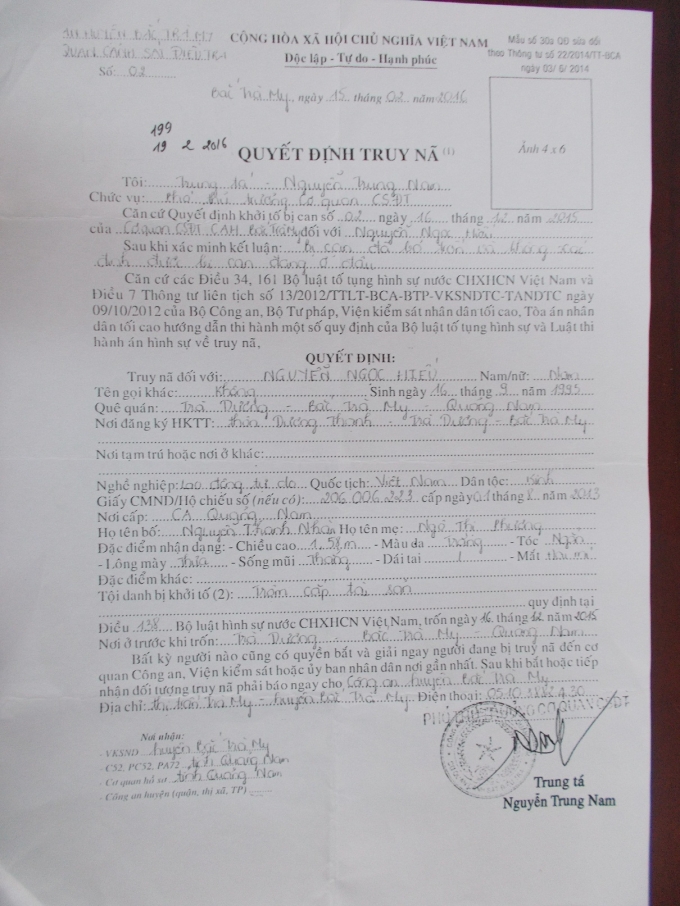 CÔNG HUYỆN BẮC TRÀ MY
QUAN CẢNH SÁT ĐIỀU TRA
Số: 02
CỘNG HÒA XÃ HỘI CHỦ NGHĨA VIỆT NAM
Độc lập - Tự do - Hạnh phúc
Mẫu số 30a QĐ sửa đổi
theo Thông tư số 22/2014/TT-BCA
ngày 03/6/2014
Bắc Trà My, ngày 15 tháng 02 năm 2016
Ảnh 4 x 6
199
19 2 2016
QUYẾT ĐỊNH TRUY NÃ (1)
Tôi: Trung tá - Nguyễn Trung Nam
Chức vụ: Phó thủ trưởng Cơ quan CSĐT
Căn cứ Quyết định khởi tố bị can số 02 ngày 16 tháng 12 năm 2015
của Cơ quan CSĐT CAH Bắc Trà My đối với Nguyễn Ngọc Hiếu
Sau khi xác minh kết luận: Bị can đã bỏ trốn và không xác
định được bị can đang ở đâu
Căn cứ các Điều 34, 161 Bộ luật tố tụng hình sự nước CHXHCN Việt Nam và
Điều 7 Thông tư liên tịch số 13/2012/TTLT-BCA-BTP-VKSNDTC-TANDTC ngày
09/10/2012 của Bộ Công an, Bộ Tư pháp, Viện kiểm sát nhân dân tối cao, Tòa án nhân
dân tối cao hướng dẫn thi hành một số quy định của Bộ luật tố tụng hình sự và Luật thi
hành án hình sự về truy nã,
QUYẾT ĐỊNH:
Truy nã đối với: NGUYỄN NGỌC HIẾU Nam/nữ: Nam
Tên gọi khác: Không Sinh ngày 16 tháng 9 năm 1995
Quê quán: Trà Dương - Bắc Trà My - Quảng Nam
Nơi đăng ký HKTT: thôn Dương Thạnh - Trà Dương - Bắc Trà My
Nơi tạm trú hoặc nơi ở khác:
Nghề nghiệp: Lao động tự do Quốc tịch: Việt Nam Dân tộc: Kinh
Giấy CMND/Hộ chiếu số (nếu có): 206 006 223 cấp ngày 01 tháng 8 năm 2013
Nơi cấp: CA Quảng Nam
Họ tên bố: Nguyễn Thanh Nhân Họ tên mẹ: Ngô Thị Phường
Đặc điểm nhận dạng: - Chiều cao 1,58m - Màu da Trắng - Tóc Ngắn
- Lông mày Thưa - Sống mũi Thẳng - Dái tai - Mắt
Đặc điểm khác:
Tội danh bị khởi tố (2): Trộm cắp tài sản
quy định tại
Điều 138 Bộ luật hình sự nước CHXHCN Việt Nam, trốn ngày 16 tháng 12 năm 2015
Nơi ở trước khi trốn: Trà Dương - Bắc Trà My - Quảng Nam
Bất kỳ người nào cũng có quyền bắt và giải ngay người đang bị truy nã đến cơ
quan Công an, Viện kiểm sát hoặc ủy ban nhân dân nơi gần nhất. Sau khi bắt hoặc tiếp
nhận đối tượng truy nã phải báo ngay cho Công an huyện Bắc Trà My
Địa chỉ: Thị trấn Trà My - huyện Bắc Trà My Điện thoại:
PHÓ THỦ TRƯỞNG CƠ QUAN CSĐT
Nơi nhận:
- VKSND huyện Bắc Trà My
- C52, PC52, PA72 tỉnh Quảng Nam
- Cơ quan hồ sơ tỉnh Quảng Nam
- Công an huyện (quận, thị xã, TP)
Trung tá
Nguyễn Trung Nam